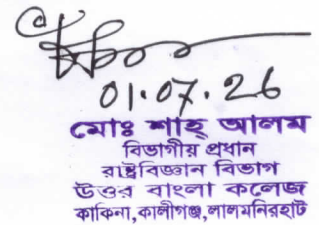 01.07.26
মোঃ শাহ্ আলম
বিভাগীয় প্রধান
রাষ্ট্রবিজ্ঞান বিভাগ
উত্তর বাংলা কলেজ
কাকিনা,কালীগঞ্জ,লালমনিরহাট